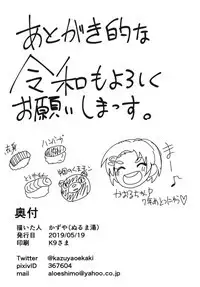 あとがき的な
令和もよろしく
お願いしまっす。
ハンバーグ
まー♪
奥付
描いた人 かずや(ぬるま湯)
発行日 2019/05/19
印刷 K9さま
Twitter @kazuyaoekaki
pixivID 367604
mail aloeshimo@yahoo.co.jp